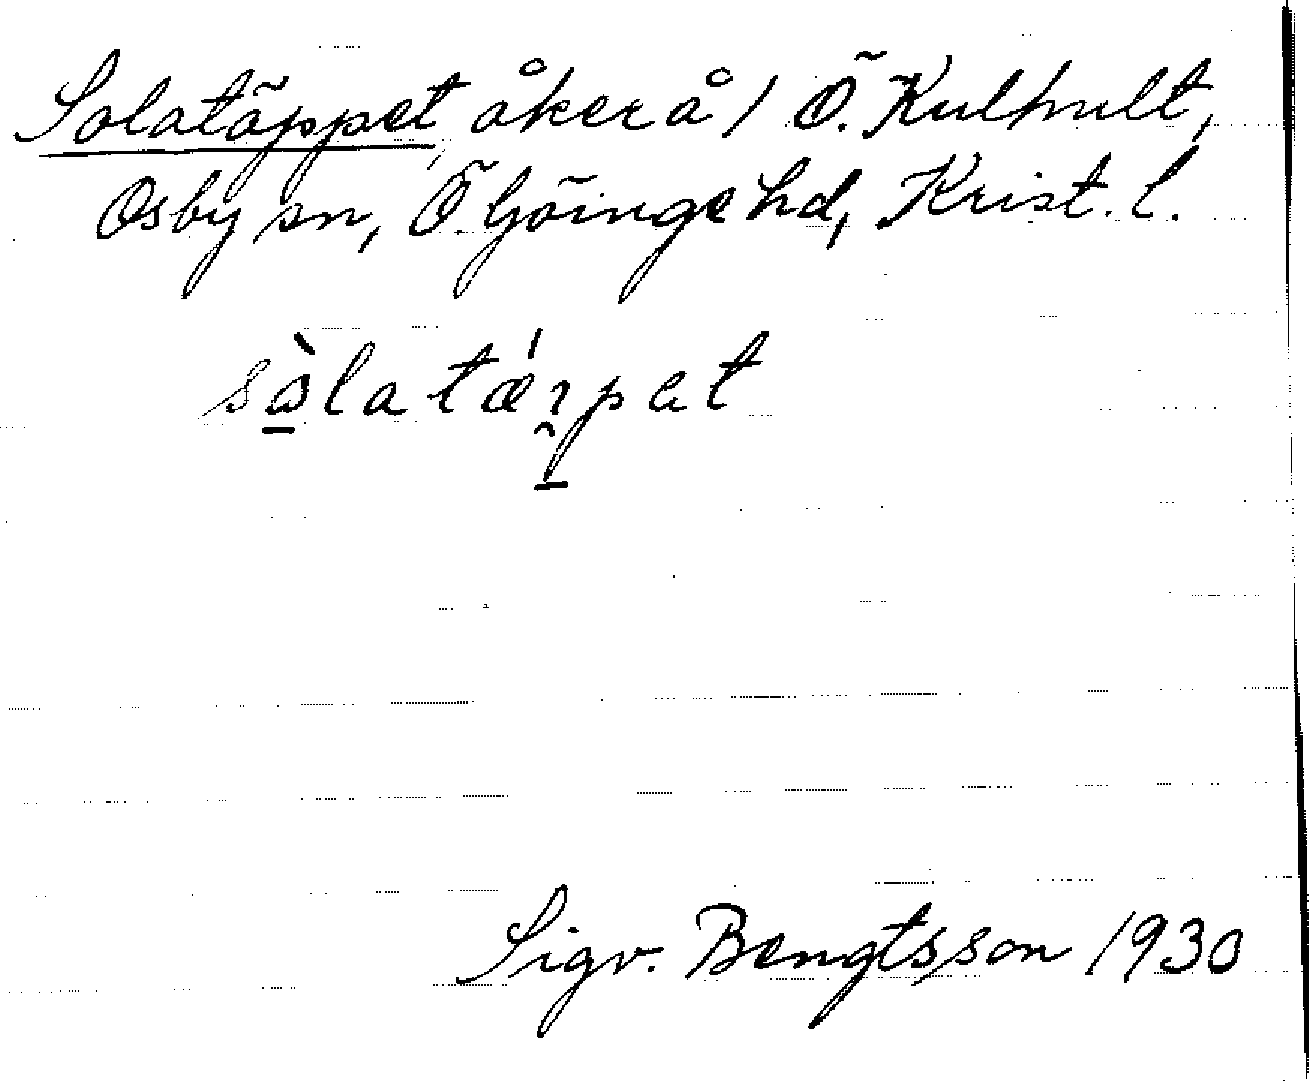 Solatäppet, åker å 1 Ö. Kulhult,
Osby sn, Ö. Göinge hd, Krist. l.
sòlatǽpet
Sigv. Bengtsson 1930